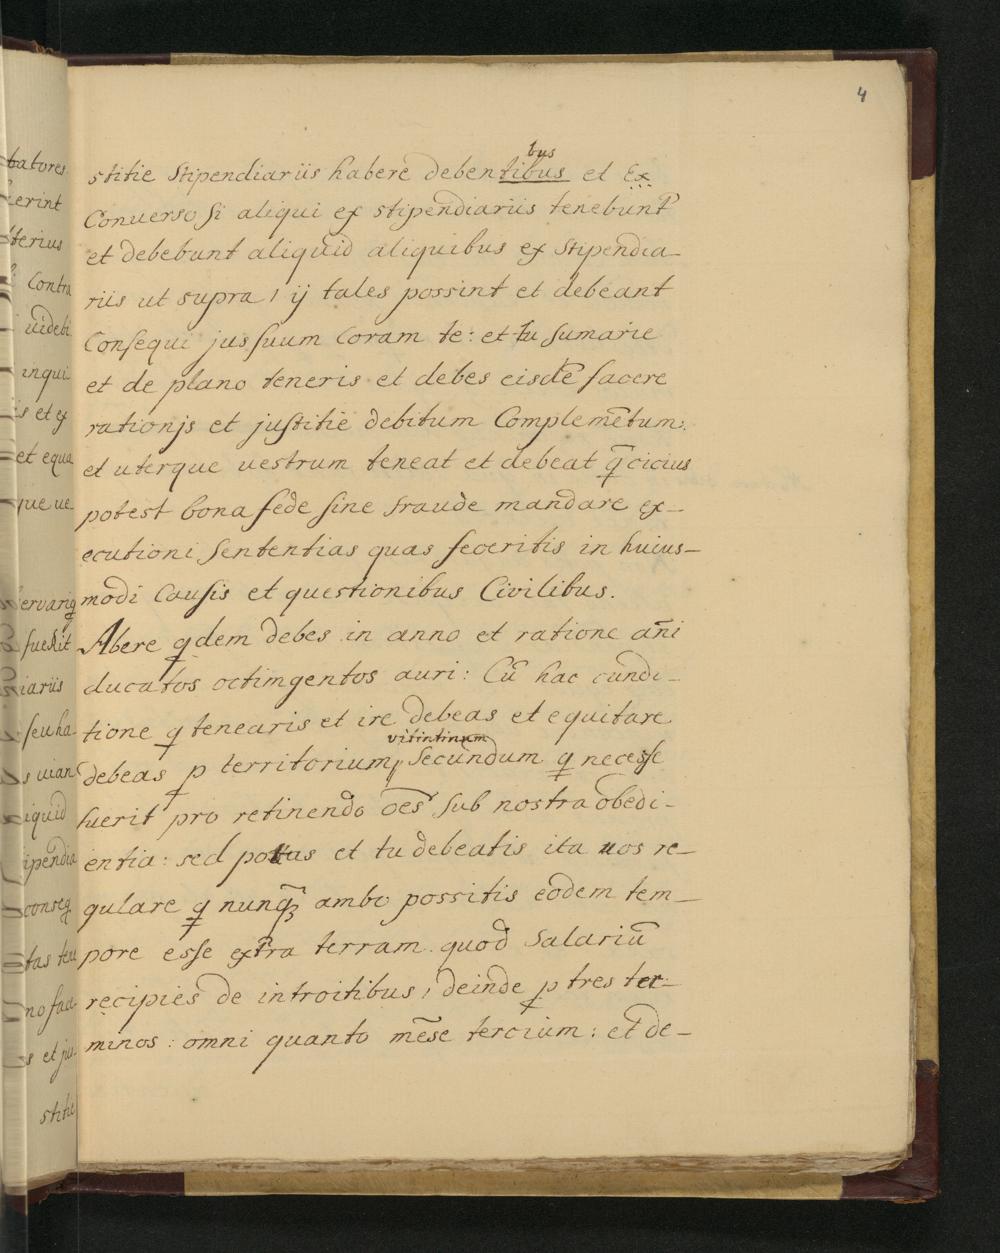 4
stitie Stipendiariis habere debentibus et Ex
bus
Conuerso si aliqui ex stipendiariis tenebunt
et debebunt aliquid aliquibus ex Stipendia-
riis ut supra, ij tales possint et debeant
Consequi jus suum Coram te: et tu sumarie
et de plano teneris et debes eisdē facere
rationjs et justitie debitum Complemētum:
et uterque uestrum teneat et debeat q̄ cicius
potest bona fede sine fraude mandare ex-
ecutioni Sententias quas feceritis in huius-
modi Causis et questionibus Civilibus.
Abere qdem debes in anno et ratione añi
ducatos octimgentos auri: Cū hac cundi-
tione q tenearis et ire debeas et equitare
debeas p territorium, Secundum q necesse
fuerit pro retinendo oēs sub nostra obedi-
entia: sed potas et tu debeatis ita uos re-
gulare q nunq̄ ambo possitis eodem tem-
pore esse extra terram. quod Salariū
recipies de introitibus, deinde p tres ter-
minos: omni quanto mēse tercium: et de-
batores
terius
Contra
uidebi
inqui
is et ex
et equa
que ue-
fuerit
iariis
seu ha-
s uian
iquid
ipendia
conseq
no fac-
s et ju-
stitie